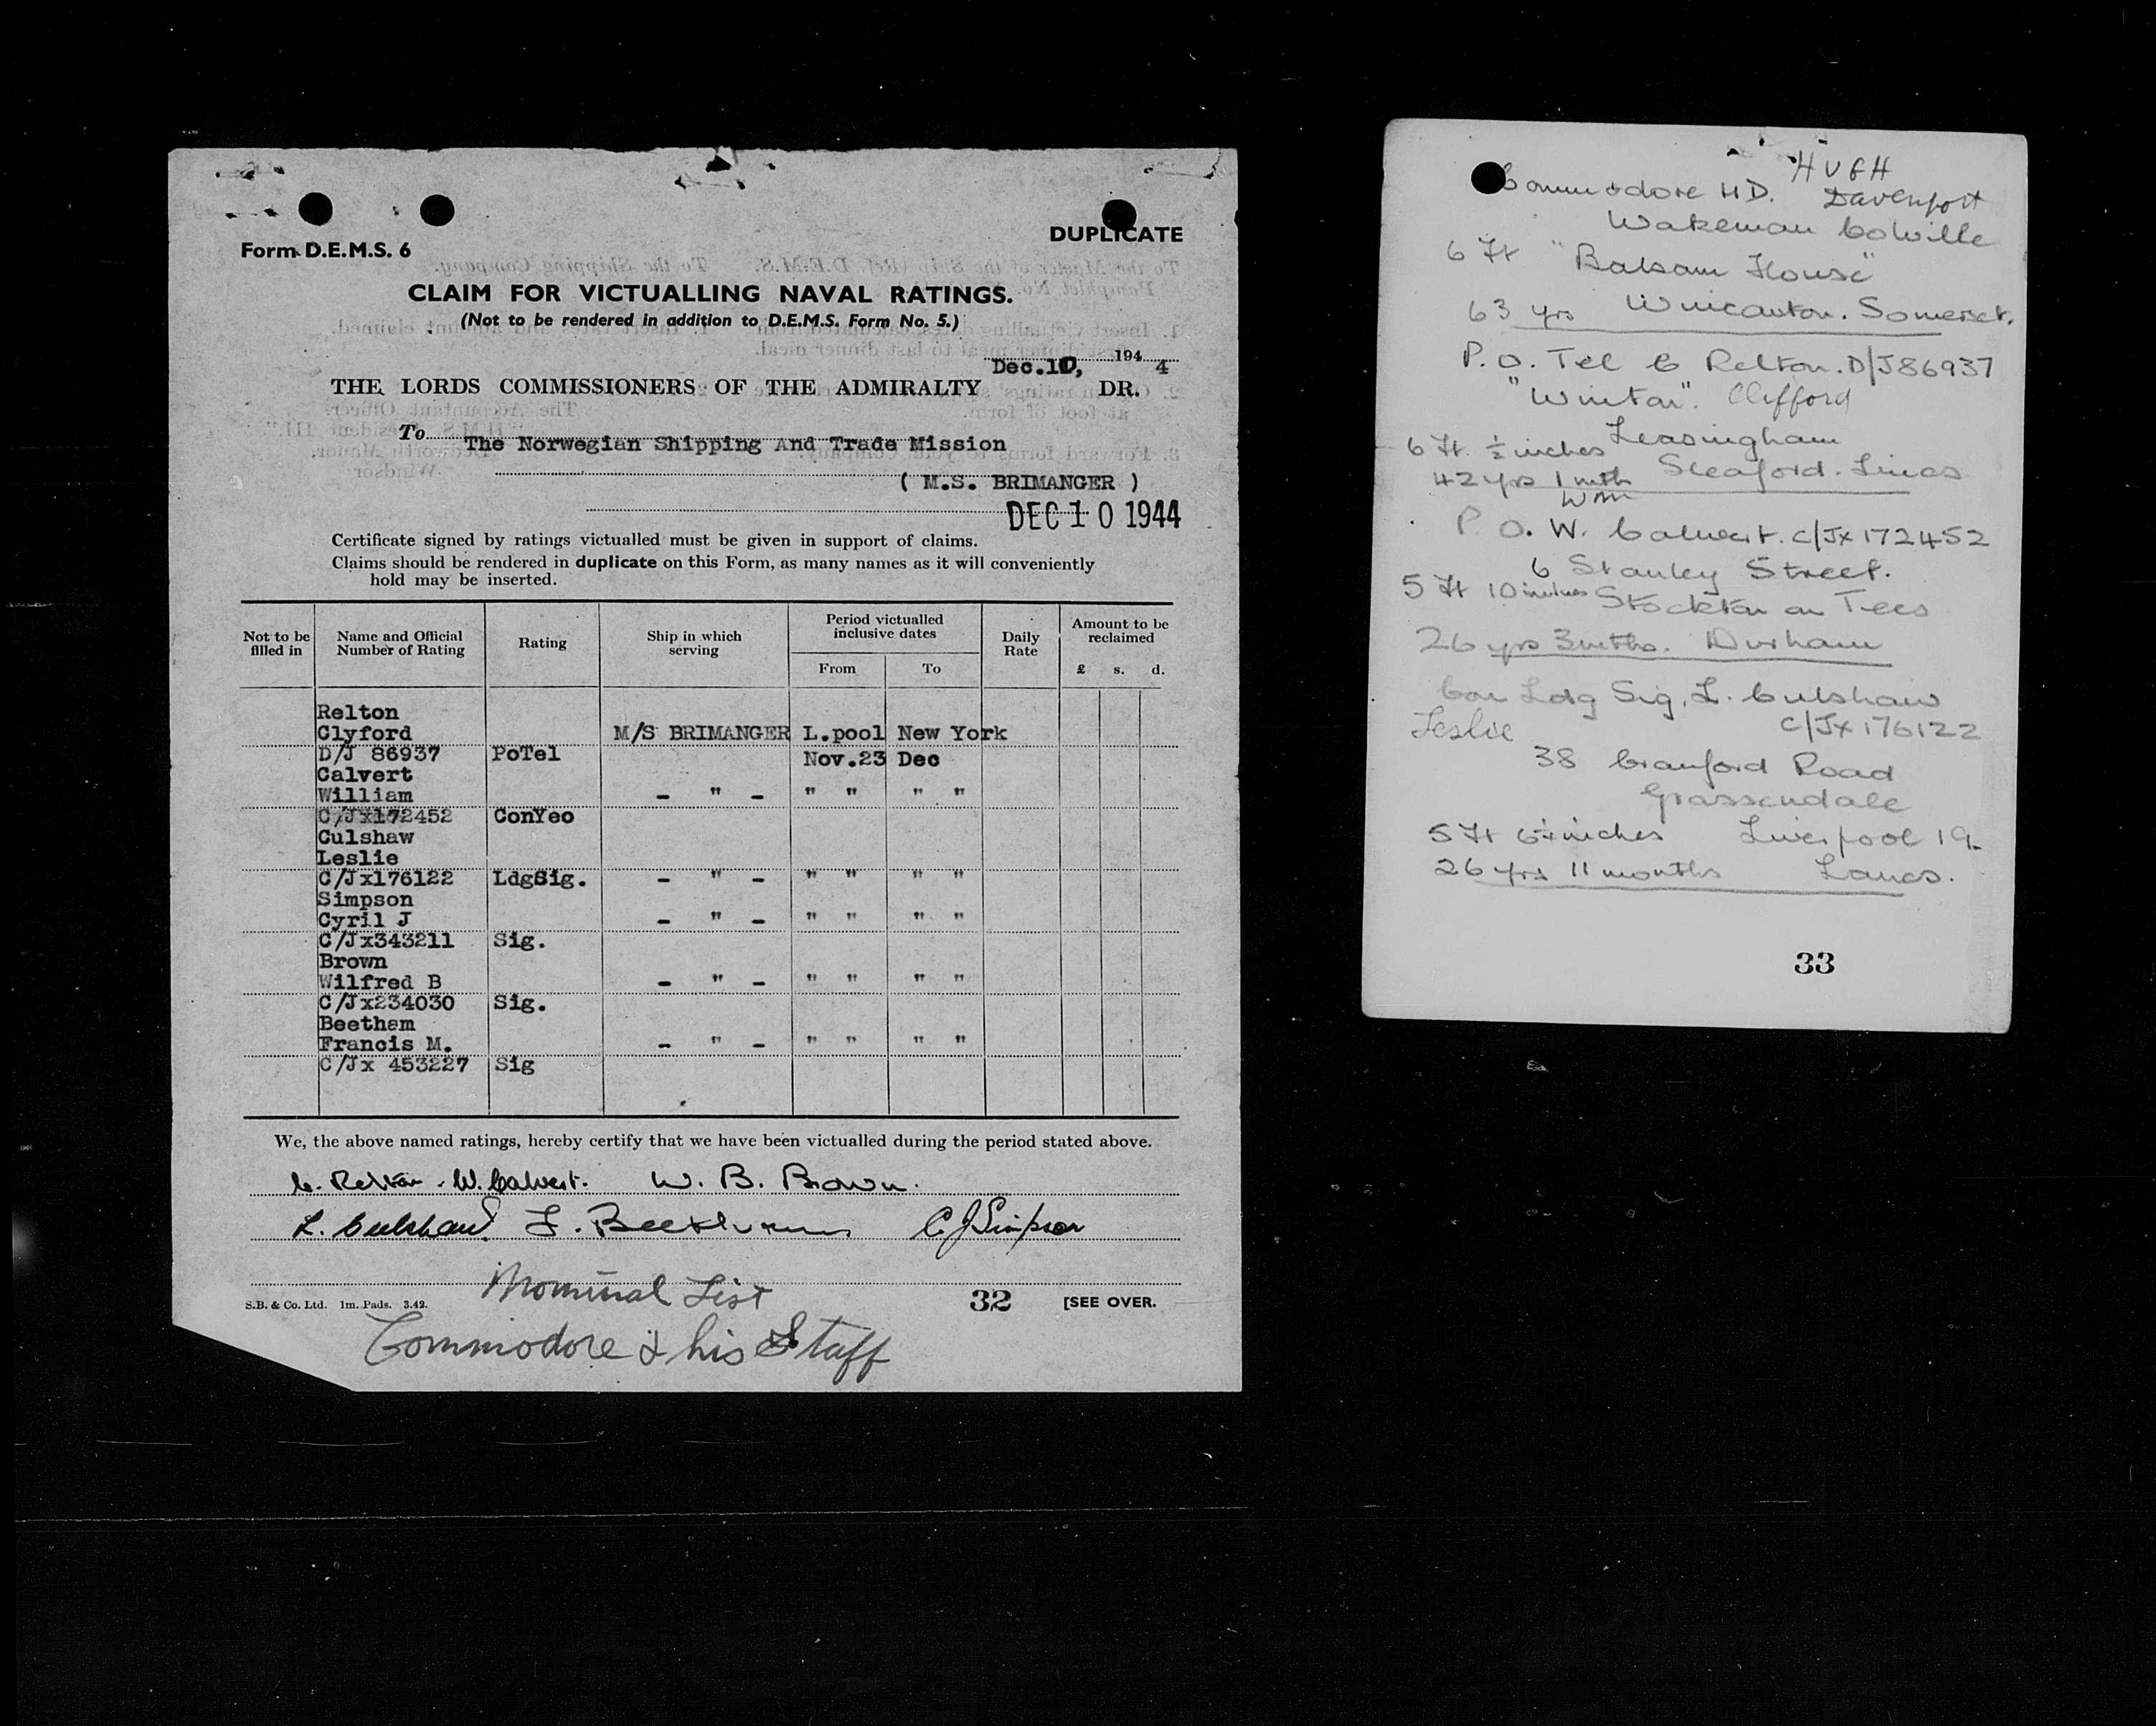 DUPLICATE
Form D.E.M.S. 6
CLAIM FOR VICTUALLING NAVAL RATINGS.
(Not to be rendered in addition to D.E.M.S. Form No. 5.)
Dec.10, 194 4
THE LORDS COMMISSIONERS OF THE ADMIRALTY DR.
To The Norwegian Shipping And Trade Mission
( M.S. BRIMANGER )
DEC 10 1944
Certificate signed by ratings victualled must be given in support of claims.
Claims should be rendered in duplicate on this Form, as many names as it will conveniently
hold may be inserted.
Not to be filled in | Name and Official Number of Rating | Rating | Ship in which serving | Period victualled inclusive dates From To | Daily Rate | Amount to be reclaimed £ s. d.
Relton
Clyford M/S BRIMANGER L.pool New York
D/J 86937 PoTel Nov.23 Dec
Calvert
William - " - " " " "
C/Jx172452 ConYeo
Culshaw
Leslie
C/Jx176122 LdgSig. - " - " " " "
Simpson
Cyril J - " - " " " "
C/Jx343211 Sig.
Brown
Wilfred B - " - " " " "
C/Jx234030 Sig.
Beetham
Francis M. - " - " " " "
C/Jx 453227 Sig
We, the above named ratings, hereby certify that we have been victualled during the period stated above.
C. Relton. W. Calvert. W. B. Brown.
L. Culshaw. F. Beetham C J Simpson
Nominal List
S.B. & Co. Ltd. 1m. Pads. 3.42. 32 [SEE OVER.
Commodore & his Staff
HUGH
Commodore HD. Davenport
Wakeman Colville
6 Ft "Balsam House"
63 yrs Wincanton. Somerset.
P.O. Tel C Relton. D/J86937
"Winton". Clifford
Leasingham
6 Ft. ½ inches
Sleaford. Lincs
42 yrs 1 mth
Wm
P.O. W. Calvert. C/Jx172452
6 Stanley Street.
5 Ft 10 inches Stockton on Tees
26 yrs 3 mths. Durham
Con Ldg Sig. L. Culshaw
Leslie C/Jx176122
38 Cranford Road
Grassendale
5 Ft inches Liverpool 19
26 yrs 11 months Lancs.
33